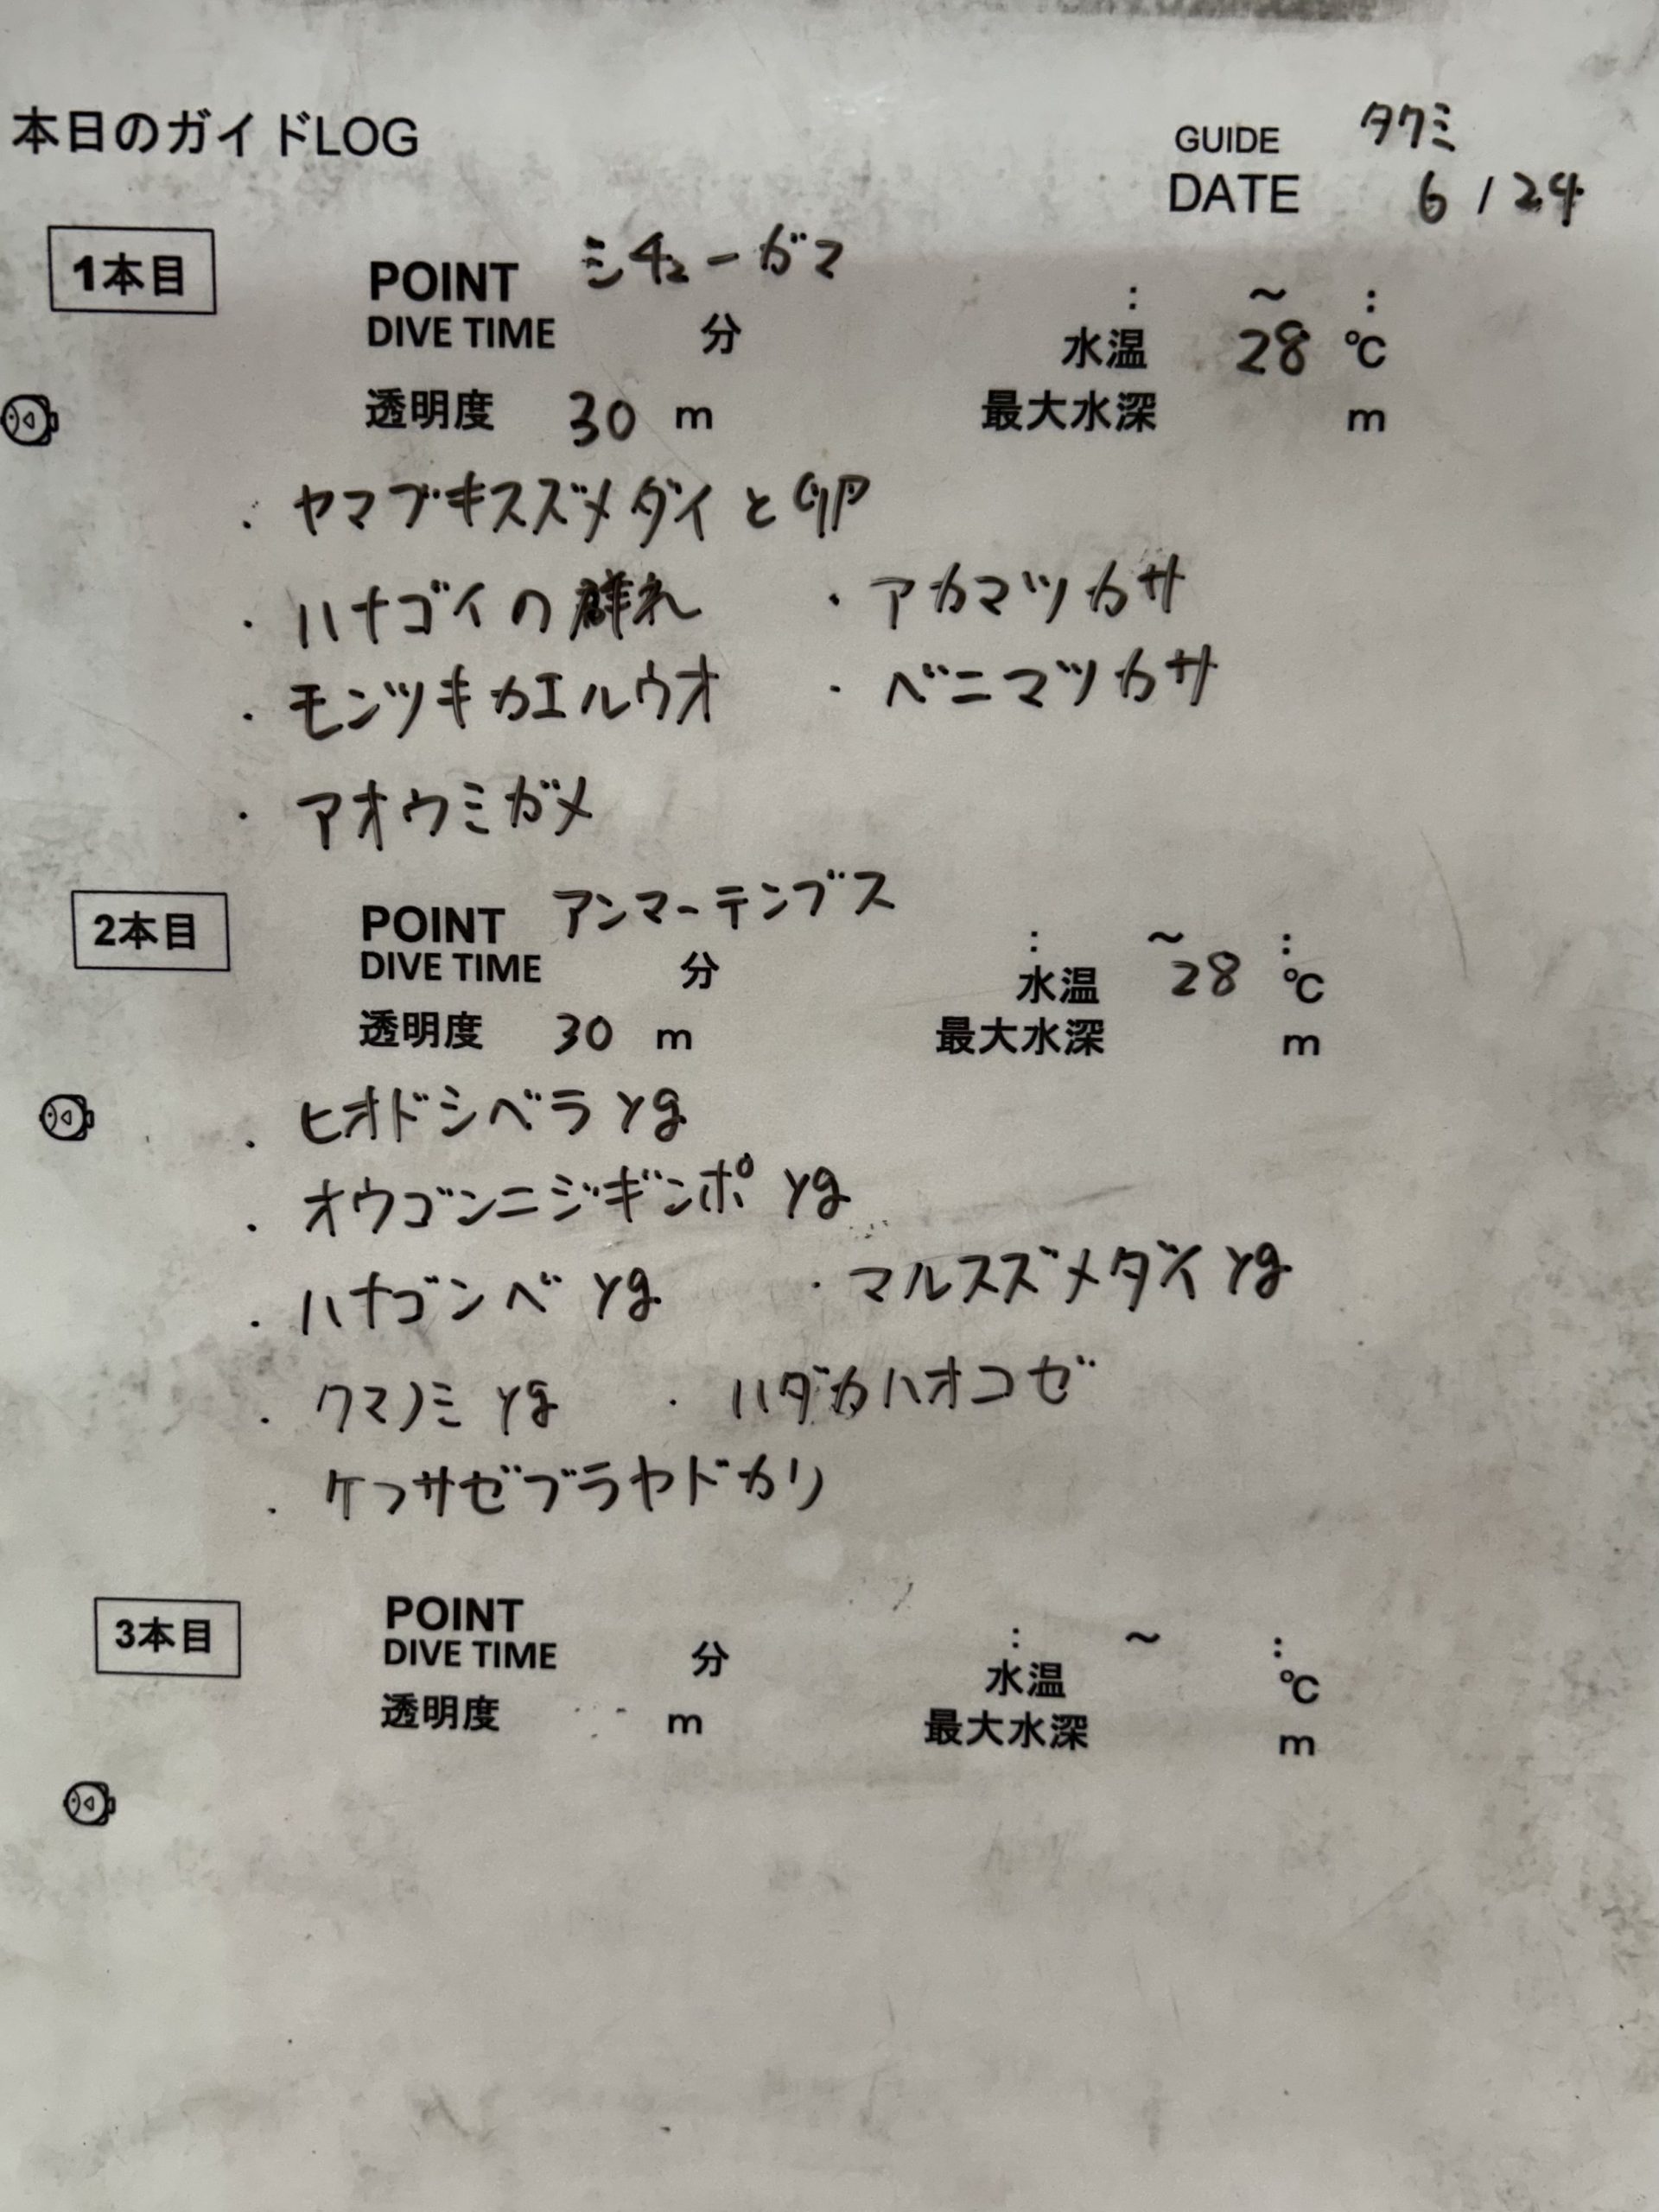 本日のガイドLOG
GUIDE タクミ
DATE 6 / 24
1本目
POINT シチューガマ : ~ :
DIVE TIME 分 水温 28 ℃
透明度 30 m 最大水深 m
・ヤマブキスズメダイと卵
・ハナゴイの群れ ・アカマツカサ
・モンツキカエルウオ ・ベニマツカサ
・アオウミガメ
2本目
POINT アンマーテンブス : ~ :
DIVE TIME 分 水温 28 ℃
透明度 30 m 最大水深 m
・ヒオドシベラ yg
・オウゴンニジギンポ yg
・ハナゴンベ yg ・マルスズメダイ yg
・クマノミ yg ・ハダカハオコゼ
・ケフサゼブラヤドカリ
3本目
POINT : ~ :
DIVE TIME 分 水温 ℃
透明度 m 最大水深 m